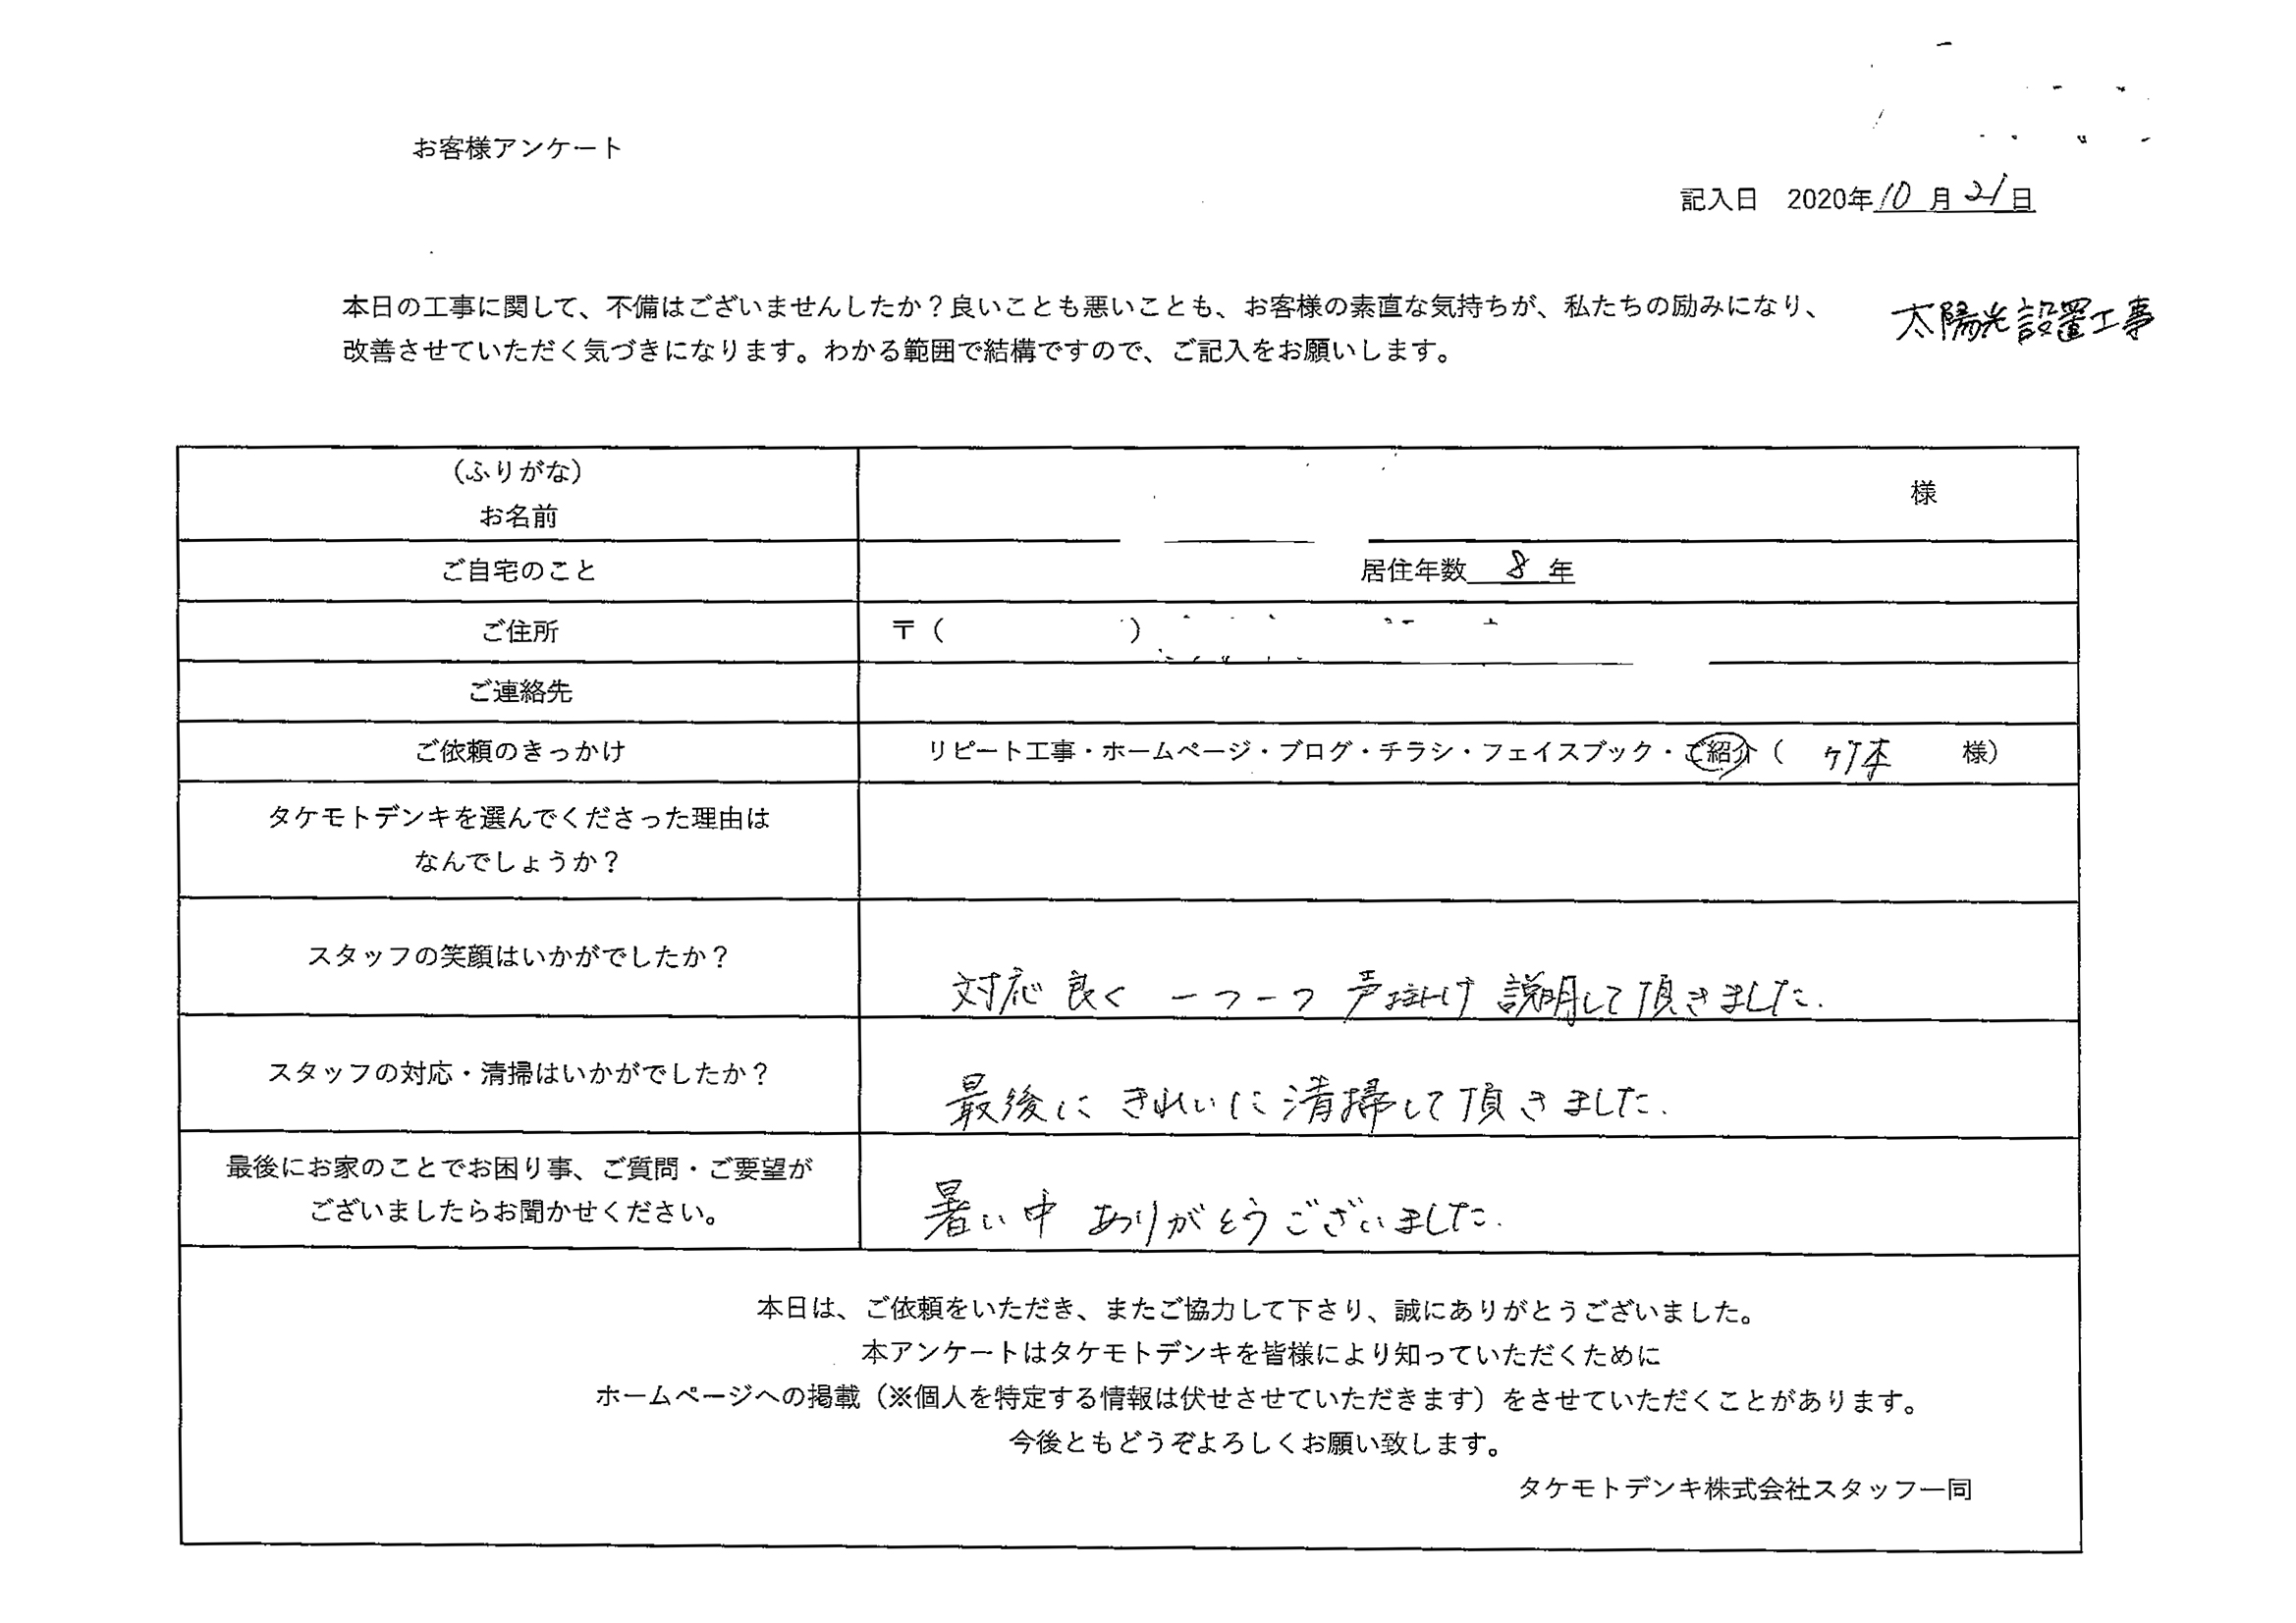 お客様アンケート
記入日 2020年10月21日
本日の工事に関して、不備はございませんしたか？良いことも悪いことも、お客様の素直な気持ちが、私たちの励みになり、
改善させていただく気づきになります。わかる範囲で結構ですので、ご記入をお願いします。
太陽光設置工事
（ふりがな）
お名前
様
ご自宅のこと
居住年数 8 年
ご住所
〒（ ）
ご連絡先
ご依頼のきっかけ
リピート工事・ホームページ・ブログ・チラシ・フェイスブック・ご紹介（ 竹本 様）
タケモトデンキを選んでくださった理由は
なんでしょうか？
スタッフの笑顔はいかがでしたか？
対応良く 一つ一つ 声掛け 説明して頂きました.
スタッフの対応・清掃はいかがでしたか？
最後に きれいに清掃して頂きました.
最後にお家のことでお困り事、ご質問・ご要望が
ございましたらお聞かせください。
暑い中 ありがとうございました.
本日は、ご依頼をいただき、またご協力して下さり、誠にありがとうございました。
本アンケートはタケモトデンキを皆様により知っていただくために
ホームページへの掲載（※個人を特定する情報は伏せさせていただきます）をさせていただくことがあります。
今後ともどうぞよろしくお願い致します。
タケモトデンキ株式会社スタッフ一同